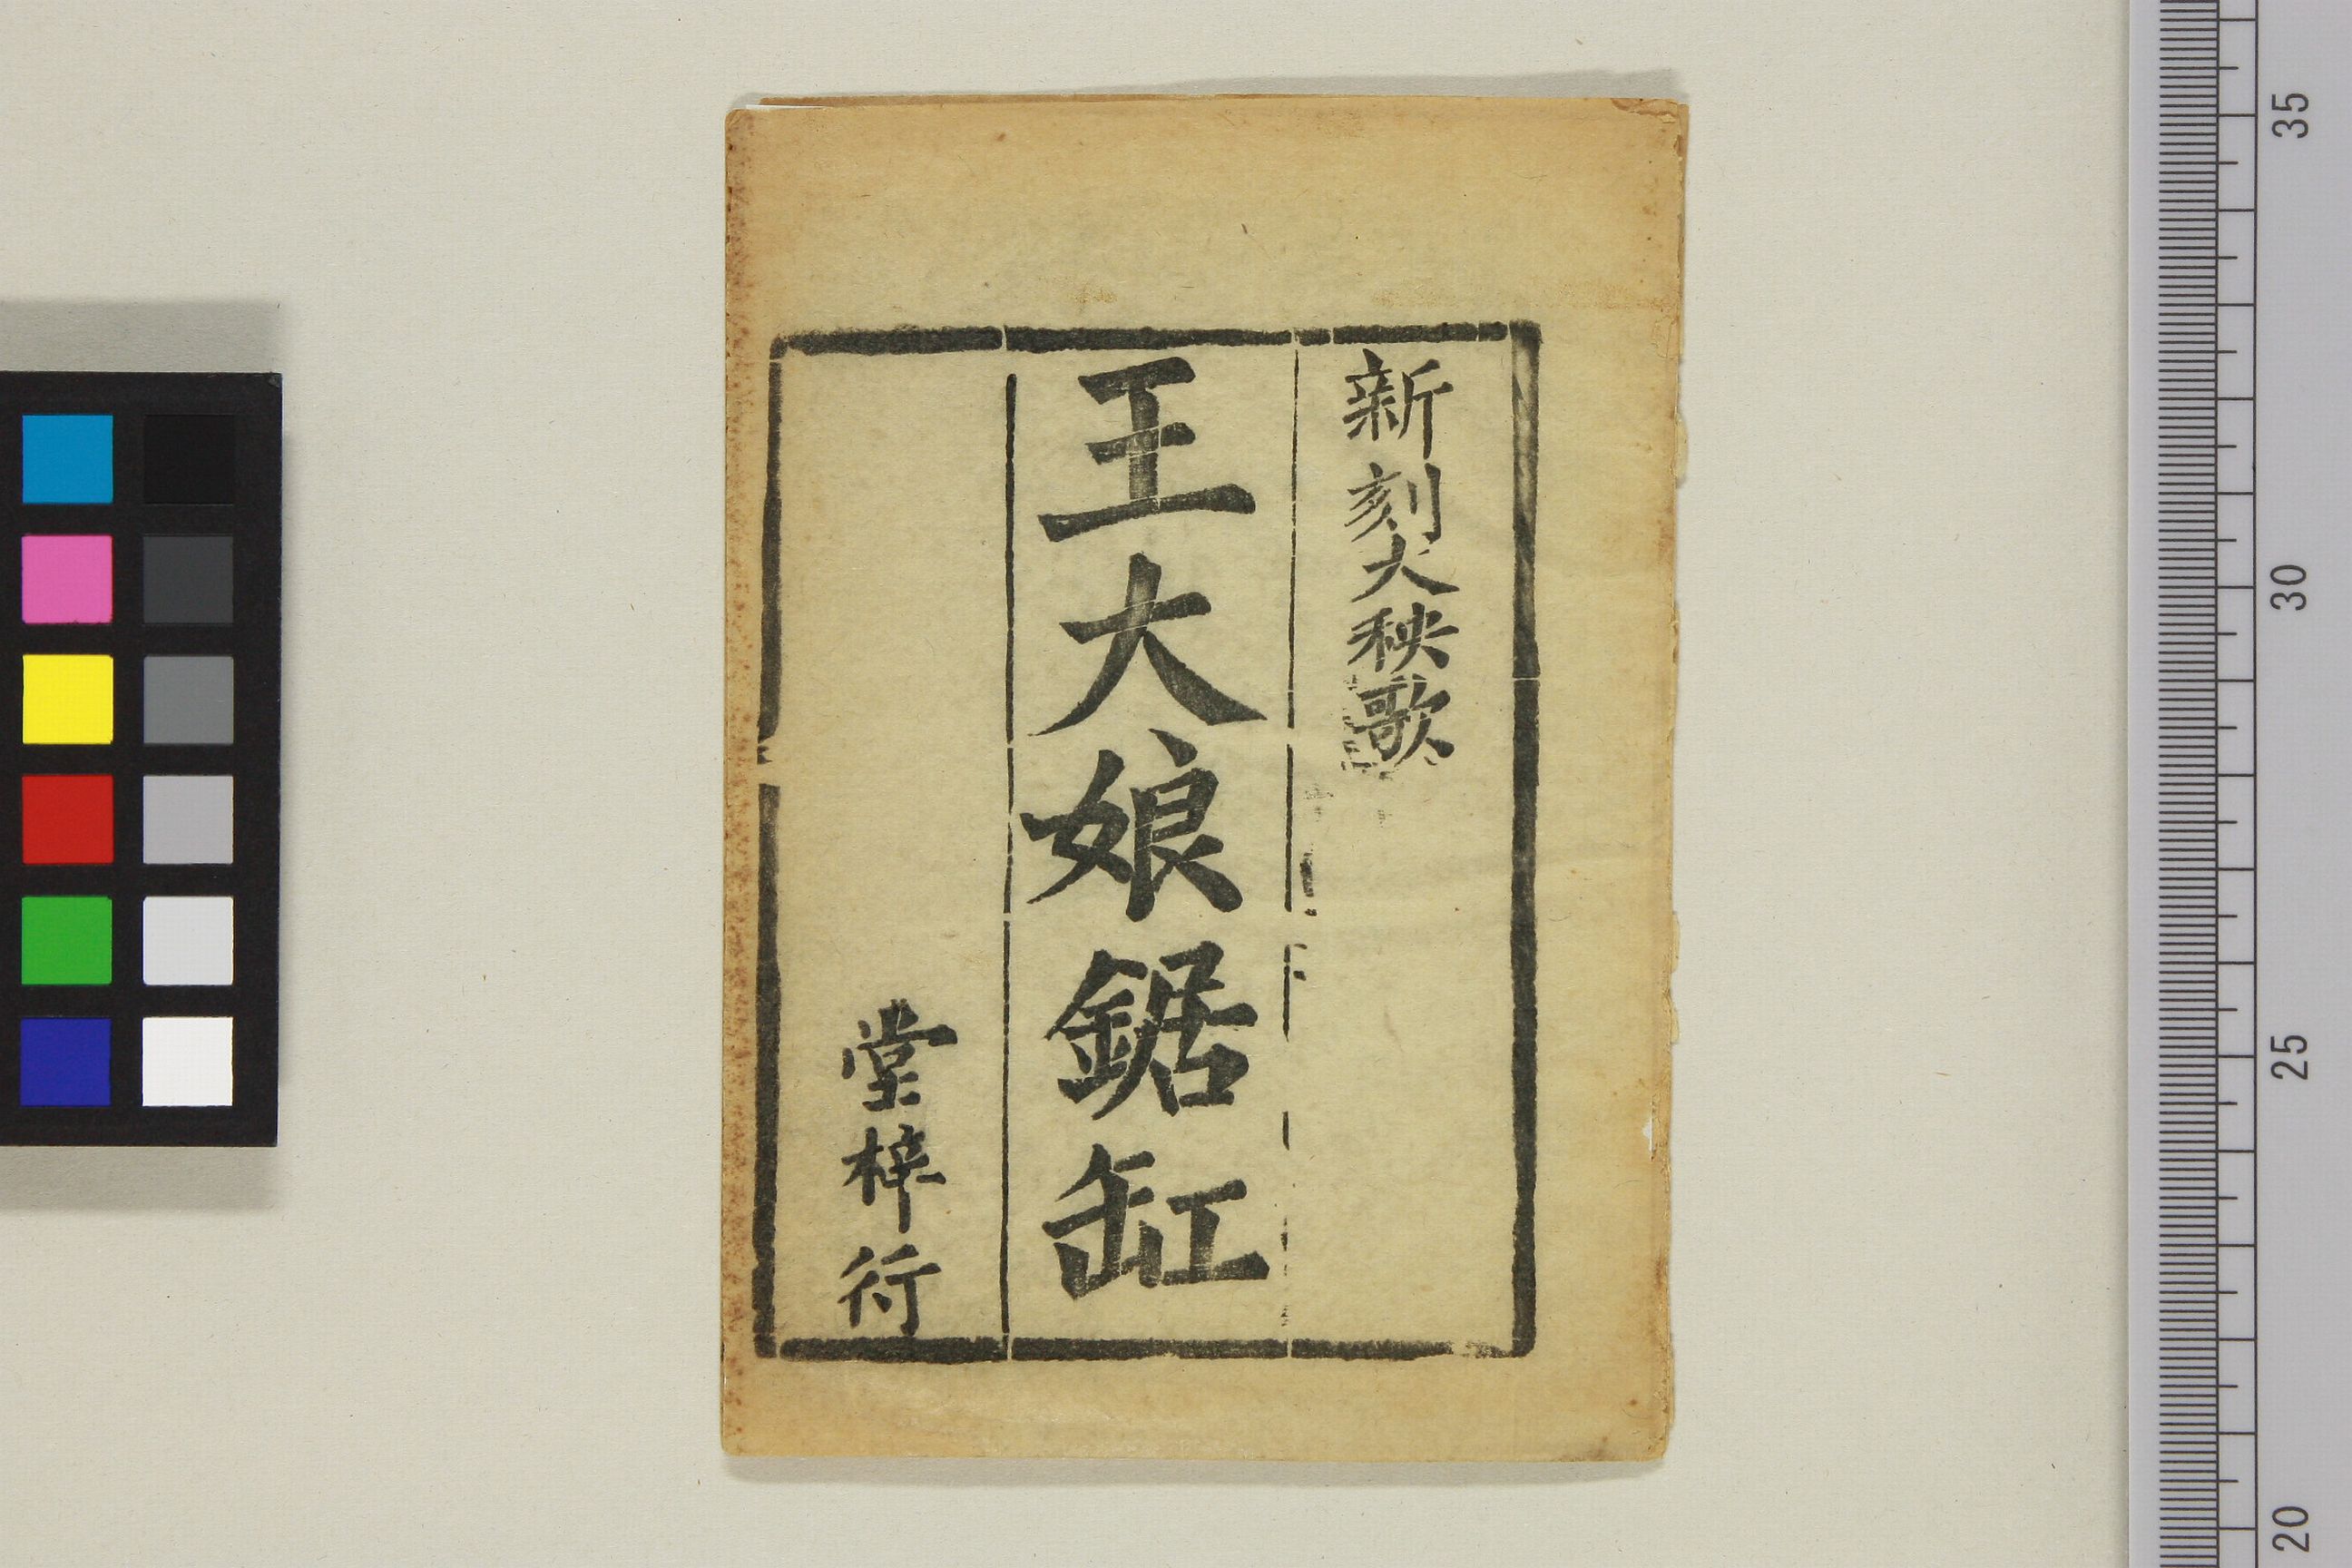 新刻大秧歌
王大娘鋸缸
堂梓行
35
30
25
20